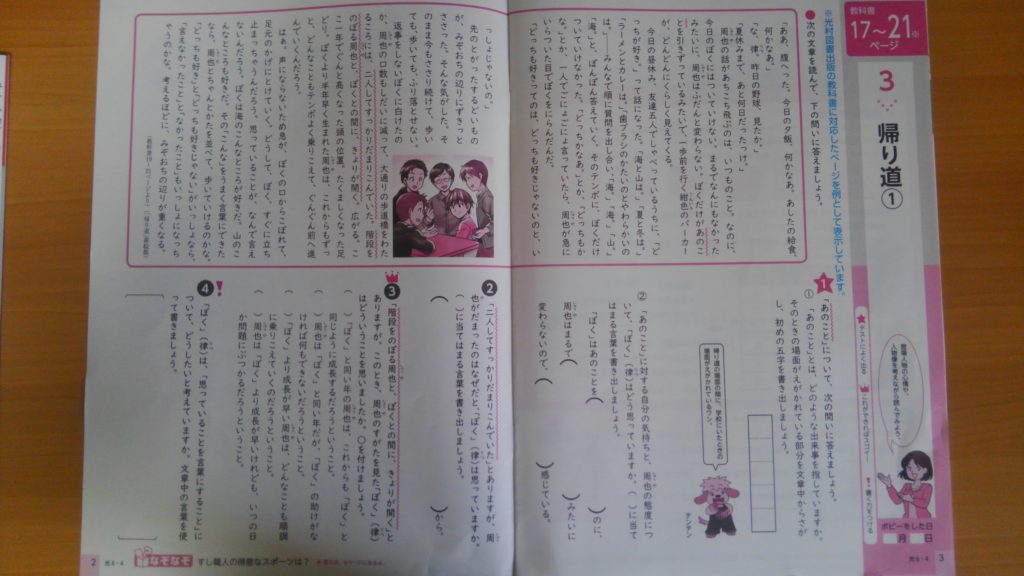 教科書
17〜21※
ページ
3
帰り道①
※光村図書出版の教科書に対応したページを例として表示しています。
●次の文章を読んで、下の問いに答えましょう。
「ああ、腹へった。今日の夕飯、何かなあ。あしたの給食、
何かなあ。」
「な、律。昨日の野球、見たか。」
「夏休みまで、あと何日だったっけ。」
周也の話があちこち飛ぶのは、いつものこと。なのに、
今日のぼくにはついていけない。まるでなんにもなかった
みたいに、周也はふだんと変わらない。ぼくだけがあのこ
とを引きずっているみたいで、一歩前を行く紺色のパーカー
が、どんどんにくらしく見えてくる。
今日の昼休み、友達五人でしゃべっているうちに、「どっ
ちが好き。」って話になった。「海と山は。」「夏と冬は。」
「ラーメンとカレーは。」「歯ブラシのかたいのとやわらかいの
は。」――みんなで順に質問を出し合い、「海。」「海。」「山。」
「海。」と、ぽんぽん答えていく。そのテンポに、ぼくだけ
ついていけなかった。「どっちかなあ。」とか、「どっちもか
な。」とか、一人でごにょごにょ言っていたら、周也が急に
いらついた目でぼくをにらんだんだ。
「どっちも好きってのは、どっちも好きじゃないのと、い
っしょじゃないの。」
先のとがったするどいもの
が、みぞおちの辺りにずきっと
ささった。そんな気がした。そ
のまま今もささり続けて、歩い
ても、歩いても、ふり落とせない。
返事をしないぼくに白けたの
か、周也の口数もしだいに減って、大通りの歩道橋をわた
るころには、二人してすっかりだまりこんでいた。階段を
のぼる周也と、ぼくとの間に、きょりが開く。広がる。こ
こ一年でぐんと高くなった頭の位置。たくましくなった足
どり。ぼくより半年早く生まれた周也は、これからもずっ
と、どんなこともテンポよく乗りこえて、ぐんぐん前へ進
んでいくんだろう。
はあ。声にならないため息が、ぼくの口からこぼれて、
足元のかげにとけていく。どうして、ぼく、すぐに立ち
止まっちゃうんだろう。思っていることが、なんで言え
ないんだろう。ぼくは海のこんなところが好きだ。山のこ
んなところも好きだ。その「こんな」をうまく言葉にできた
なら、周也とちゃんとかたを並べて、歩いていけるのかな。
「どっちも好き」と「どっちも好きじゃない」がいっしょなら、
「言えなかったこと」と「なかったこと」もいっしょになっち
ゃうのかな。考えるほどに、みぞおちの辺りが重くなる。
登場人物の心情や、
人物像を考えながら読んでみよう。
★テストによく出る
これができればスゴイ!
!書く力をつける
ポピーをした日
月 日
1
「あのこと」について、次の問いに答えましょう。
① 「あのこと」とは、どのような出来事を指していますか。
そのときの場面がえがかれている部分を文章中からさが
し、初めの五字を書き出しましょう。
帰り道の場面の間に、学校にいたときの
場面がえがかれているワン。
ワンテン
② 「あのこと」に対する自分の気持ちと、周也の態度につ
いて、「ぼく」(律)はどう思っていますか。( )に当て
はまる言葉を書き出しましょう。
「ぼく」はあのことを
( )のに、
周也はまるで( )みたいに
変わらないので、( )感じている。
2
「二人してすっかりだまりこんでいた」とありますが、周
也がだまったのはなぜだと、「ぼく」(律)は思っていますか。
( )に当てはまる言葉を書き出しましょう。
( )から。
3
「階段をのぼる周也と、ぼくとの間に、きょりが開く」と
ありますが、このとき、周也のすがたを見た「ぼく」(律)
はどういうことを思いましたか。○を付けましょう。
( )「ぼく」と同い年の周也は、これからも「ぼく」と
同じように成長するだろうということ。
( )周也は「ぼく」と同い年だが、「ぼく」の助けがな
ければ何もできないだろうということ。
( )「ぼく」より成長が早い周也は、どんなことも順調
に乗りこえていくのだろうということ。
( )周也は「ぼく」より成長が早いけれども、いつの日
か問題にぶつかるだろうということ。
!
4
「ぼく」(律)は、「思っていることを言葉にすること」に
ついて、どうしたいと考えていますか。文章中の言葉を使
って書きましょう。
2
光6・4
なぞなぞ
すし職人の得意なスポーツは?
光6・4
3